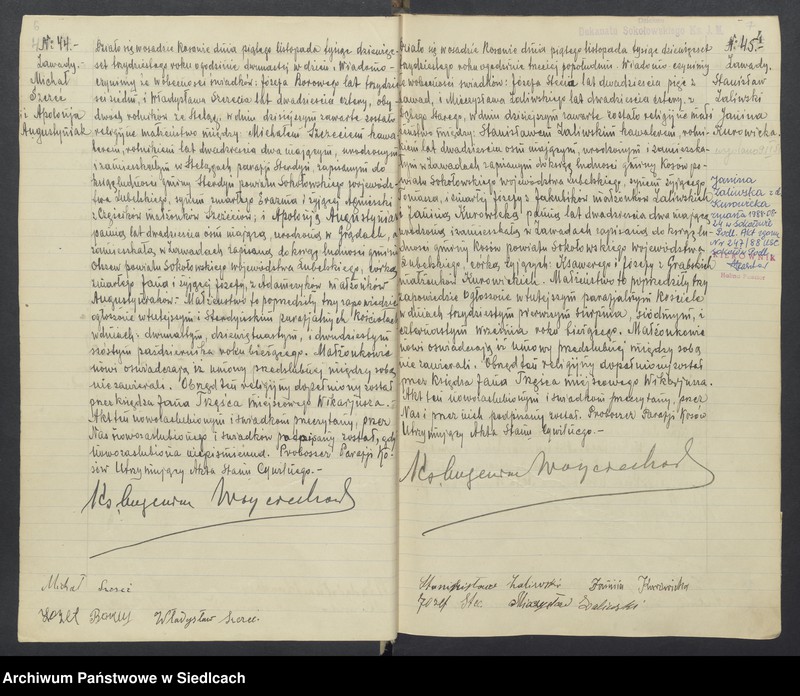 6
№ 44.-
Zawady.-
Michał
Szerec
i Apolonja
Augustyniak
Działo się w osadzie Kosowie dnia piątego listopada tysiąc dziewięć-
set trzydziestego roku o godzinie dwunastej w dzień. Wiadomo
czynimy że w obecności świadków: Józefa Borowego lat trzydzie-
ści siedm, i Władysława Szereca lat dwadzieścia cztery, oby
dwóch rolników ze Stelag, w dniu dzisiejszym zawarte zostało
religijne małżeństwo między: Michałem Szerecem kawa
lerem, rolnikiem lat dwadzieścia dwa mającym, urodzonym
i zamieszkałym w Stelągach parafji Sterdyń zapisanym do
ksiąg ludności gminy Sterdyń powiatu Sokołowskiego wojewódz-
twa Lubelskiego, synem zmarłego Erazma i żyjącej Agnieszki
małżonków Szereców; i Apolonją Augustyniak
panną lat dwadzieścia osm mającą, urodzoną w Grądach, a
zamieszkałą w Zawadach zapisaną do ksiąg ludności gminy
powiatu Sokołowskiego województwa Lubelskiego, córką
zmarłego Jana i żyjącej Józefy z Adamczyków małżonków
Augustyniaków. Małżeństwo to poprzedziły trzy zapowiedzie
ogłoszone w tutejszym i Sterdyńskim parafjalnych Kościołach
w dniach: dwunastym, dziewiętnastym, i dwudziestym
szóstym października roku bieżącego. Małżonkowie
nowi oświadczają iż umowy przedślubnej między sobą
nie zawierali. Obrzęd ten religijny dopełniony został
przez księdza Jana Tkęsca miejscowego Wikarjusza.
Akt ten nowozaślubionym i świadkom przeczytany, przez
Nas nowozaślubionego i świadków podpisany został, gdyż
nowozaślubiona niepiśmienna. Proboszcz Parafji Ko-
sów Utrzymujący Akta Stanu Cywilnego.-
Ks. Eugenjusz
Michał Szerec
Józef Borowy Władysław Szerec.
№ 45.
Zawady.
Stanisław
Zaliwski
i Janina
Kurowicka.
Działo się w osadzie Kosowie dnia piątego listopada tysiąc dziewięćset
trzydziestego roku o godzinie trzeciej popołudniu. Wiadomo czynimy
że w obecności świadków: Józefa Steca lat dwadzieścia pięć z
Zawad, i Mieczysława Zaliwskiego lat dwadzieścia cztery, z
w dniu dzisiejszym zawarte zostało religijne mał-
żeństwo między: Stanisławem Zaliwskim kawalerem, rolni-
kiem lat dwadzieścia osm mającym, urodzonym i zamieszka-
łym w Zawadach zapisanym do ksiąg ludności gminy Kosów po-
wiatu Sokołowskiego województwa Lubelskiego, synem żyjącego
i zmarłej Józefy z Jakubików małżonków Zaliwskich
i Janiną Kurowicką panną lat dwadzieścia dwa mającą
urodzoną i zamieszkałą w Zawadach zapisaną do ksiąg lu-
dności gminy Kosów powiatu Sokołowskiego województwa
Lubelskiego, córką żyjących: Ksawerego i Józefy z Grabskich
małżonków Kurowickich. Małżeństwo to poprzedziły trzy
zapowiedzie ogłoszone w tutejszym parafjalnym Kościele
w dniach trzydziestym pierwszym sierpnia, siódmym, i
czternastym września roku bieżącego. Małżonkowie
nowi oświadczają iż umowy przedślubnej między sobą
nie zawierali. Obrzęd ten religijny dopełniony został
przez Księdza Jana Tkęsca miejscowego Wikarjusza.
Akt ten nowozaślubionym i świadkom przeczytany, przez
Nas i przez nich podpisany został. Proboszcz Parafji Kosów
Utrzymujący Akta Stanu Cywilnego.-
Ks. Eugenjusz
Stanisław Zaliwski Janina Kurowicka
Józef Stec Mieczysław Zaliwski
Janina
Zaliwska z d.
Kurowicka
zmarła 1988-08
24 w Sokołowie
Podl. Akt zgonu
Nr 247/88 USC
Sokołów Podl.
KIEROWNIK
Archiwum Państwowe w Siedlcach